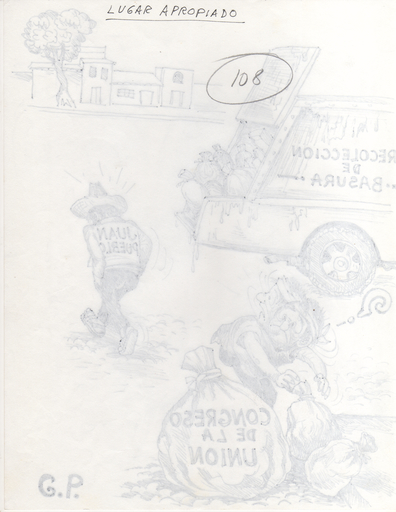 LUGAR APROPIADO
108
RECOLECCION
DE
BASURA..
JUAN
PUEBLO
CONGRESO
DE LA
UNION
G.P.